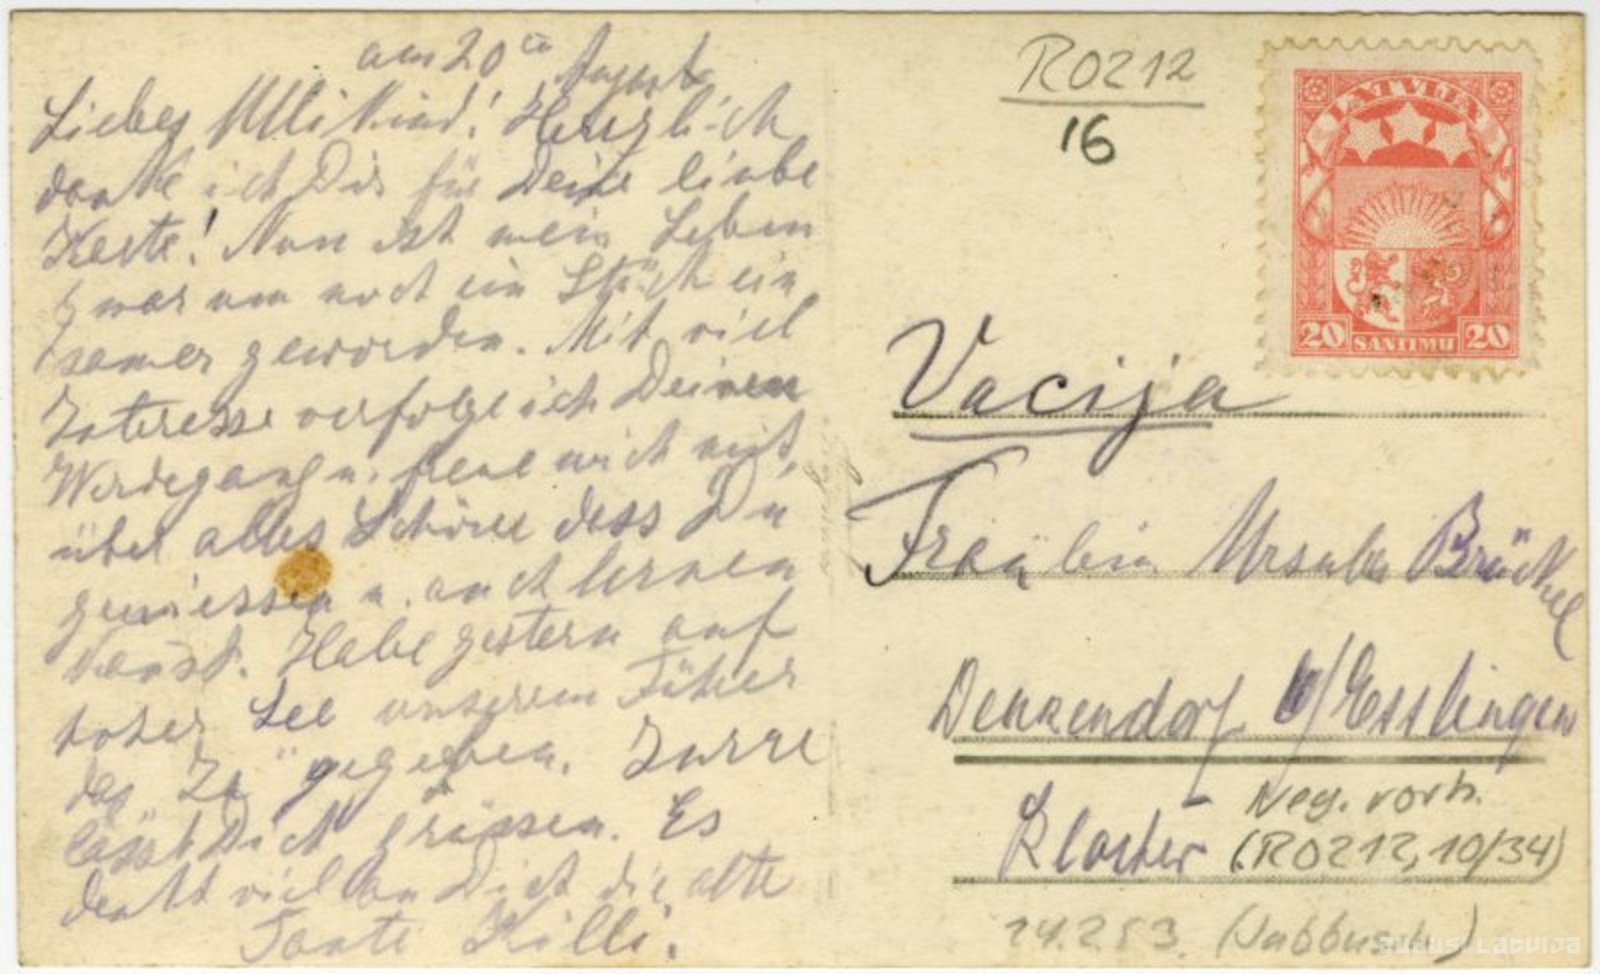 am 20ten August
Liebes Ulli Kind! Herzlich
danke ich Dir für Deine liebe
Karte! Nun ist mein Leben
zwar um noch ein Stück ein
samer geworden. Mit viel
Interesse verfolge ich Deinen
Werdegang u. freue mich mit,
über alles Schöne dass Du
geniessen u. auch lernen
kanst. Habe gestern auf
hoher See unserem Führer
das "Ja" gegeben.
lässt Dich grüssen. Es
denkt viel an Dich die alte
Tante Killi.
R0212
16
LATVIJA
20 SANTIMU 20
Vacija
Fräulein Ursula Brückel
Denkendorf b/Esslingen
Kloster
Neg. vorh.
(R0212, 10/34)
24.253. (Jabbusch)
zudusi latvija